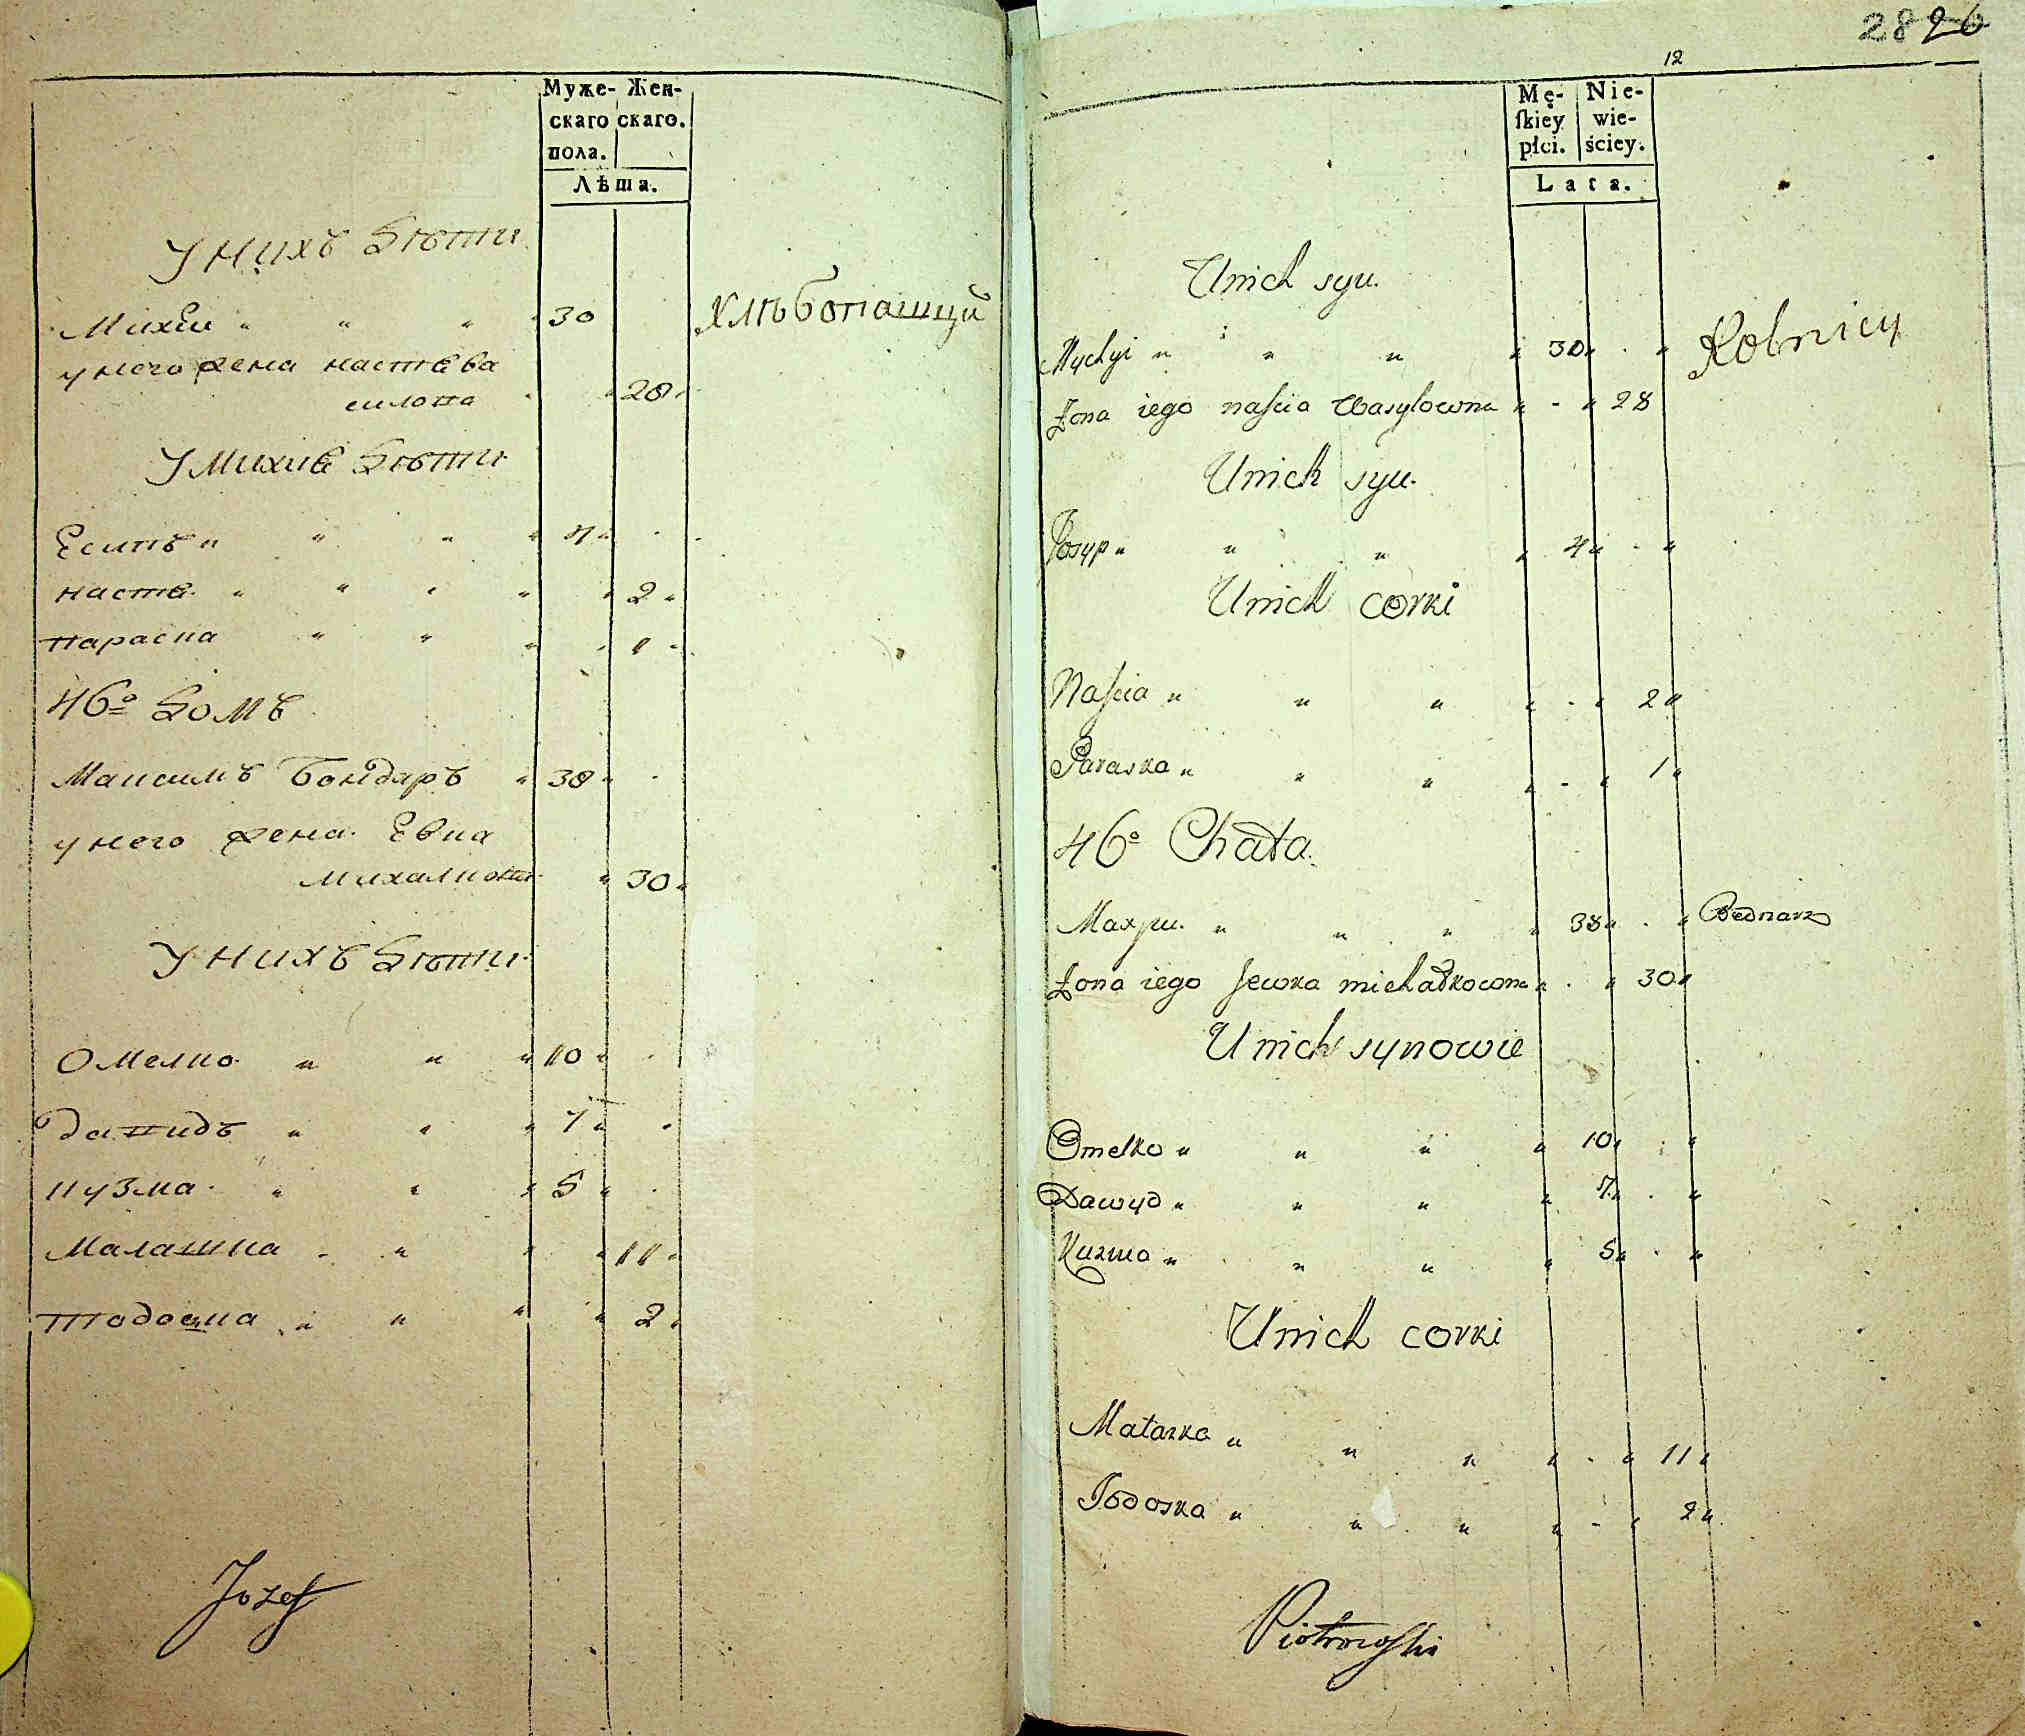 Муже- Жен-
скаго скаго.
пола.
Лѣта.
У нихъ дѣти
Михѣи " " " " 30 хлѣбопашцы
у него жена настѣ ва
силова " " 28 "
У Михиѣ дѣти
Есипъ " " " " 4 " . .
настѣ. " " " " " 2 "
параска " " " . 1 "
46º домъ
Максимъ Бондаръ " 38 " .
у него жена. Евка
михалкова " 30 "
У нихъ дѣти
Омелко " " " 10 " .
давидъ " " " 7 " "
кузма. " " " 5 " .
Малашка " " " " 11 "
тодоска " " " " 2 "
Jozef
2826
12
Mę- Nie-
ſkiey wie-
płci. ściey.
Lata.
U nich syn.
Mychyi " " " " 30 " . " Rolnicy
Żona iego naścia Wasylowna " - " 28
U nich syn.
Josyp " " " " 4 " - "
U nich corki
Naścia " " " " - " 2 "
Paraska " " " " - " 1 "
46º Chata.
Maxym. " " " " 38 " . " Bednarz
Żona iego Jewka michałkowna " . " 30 "
U nich synowie
Omelko " " " " 10 " : "
Dawyd " " " " 7 " . "
Kuzma " " " " 5 " . "
U nich corki
Małaszka " " " " - " 11 "
Todoska " " " " - " 2 "
Piotrowſki